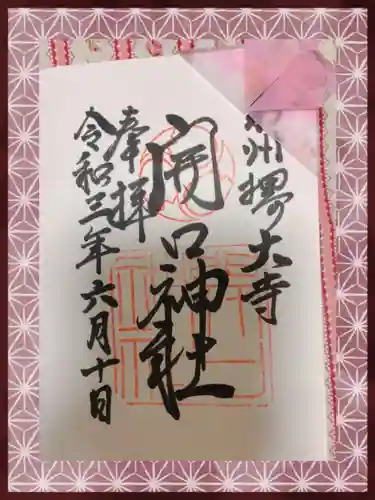 州堺の大寺
開口神社
奉拝
令和三年六月十日